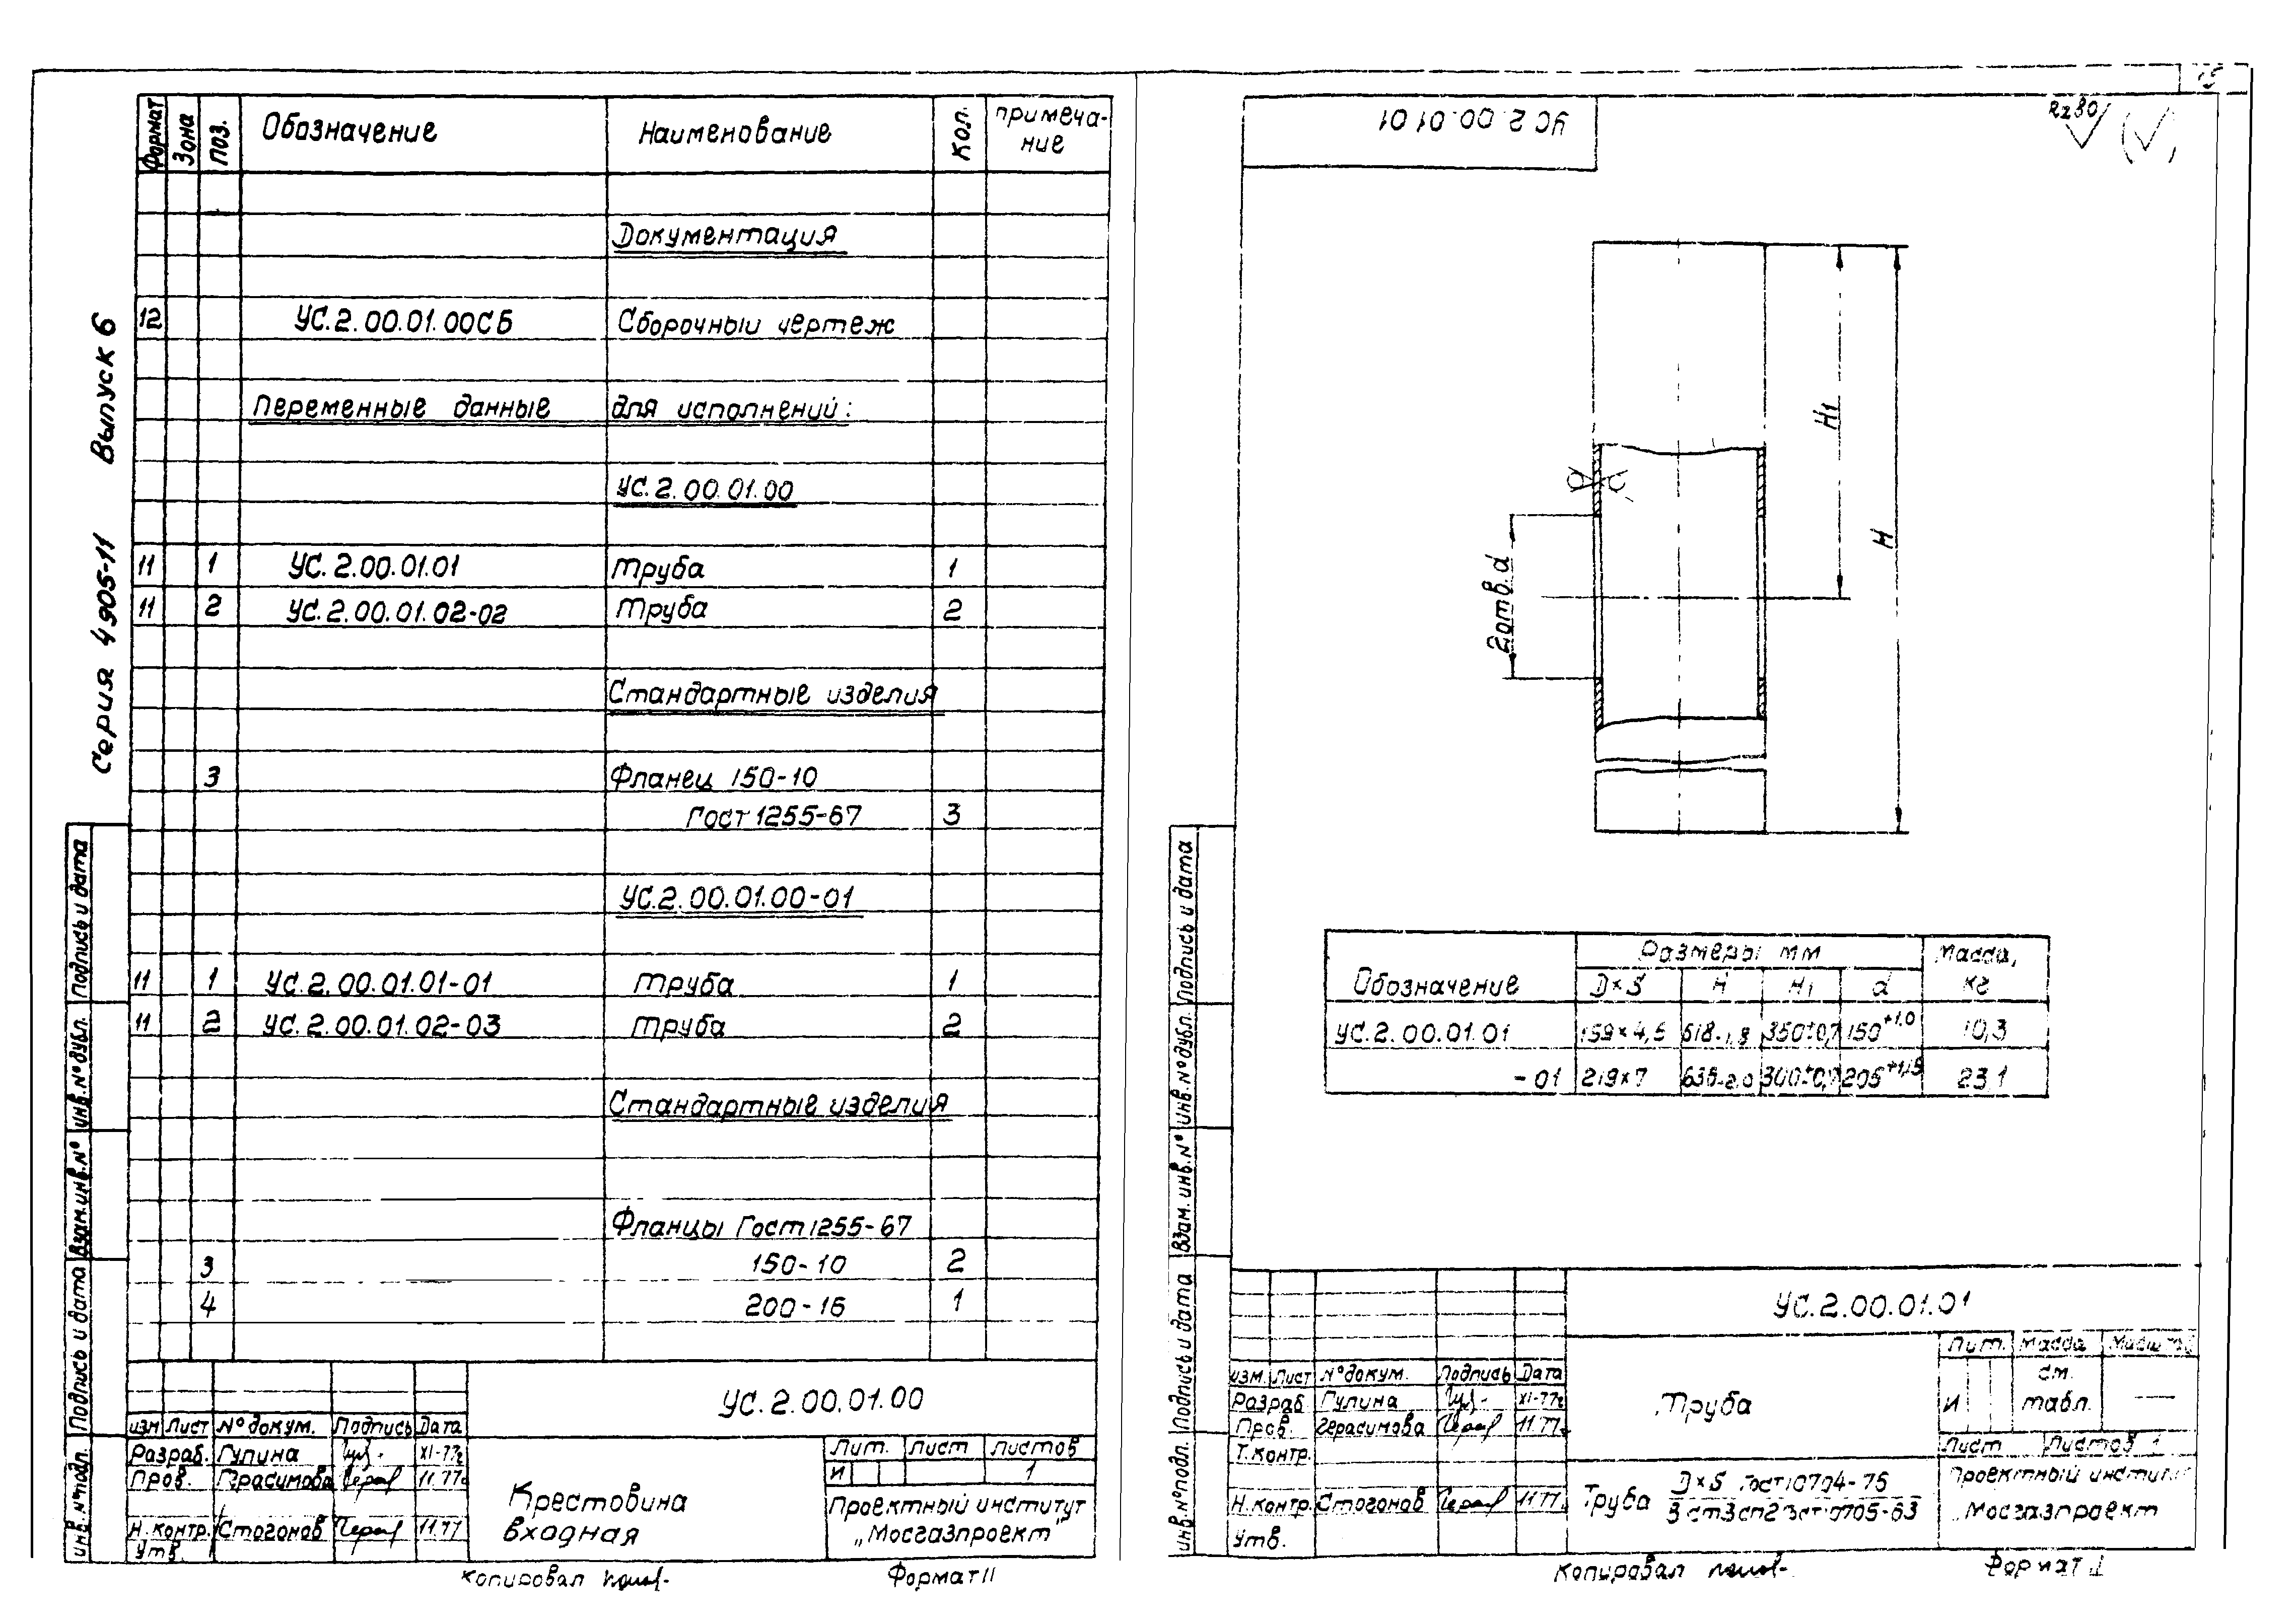 Серия 4905-11 Выпуск 6
Формат Зона Поз. Обозначение Наименование Кол. примеча-
ние
Документация
12 УС.2.00.01.00СБ Сборочный чертеж
Переменные данные для исполнений:
УС.2.00.01.00
11 1 УС.2.00.01.01 Труба 1
11 2 УС.2.00.01.02-02 Труба 2
Стандартные изделия
3 Фланец 150-10
Гост 1255-67 3
УС.2.00.01.00-01
11 1 УС.2.00.01.01-01 Труба 1
11 2 УС.2.00.01.02-03 Труба 2
Стандартные изделия
Фланцы Гост 1255-67
3 150-10 2
4 200-16 1
Подпись и дата
инв.№дубл.
Взам.инв.№
Подпись и дата
инв.№подл.
УС.2.00.01.00
изм Лист №докум. Подпись Дата
Разраб. Гулина XI-77г
Пров. Герасимова 11.77г
Н.контр. Стогонов 11.77
Утв.
Крестовина
входная
Лит. Лист Листов
И 1
Проектный институт
„Мосгазпроект"
Копировал
Формат 11
УС.2.00.01.01
Rz80
H1
H
2отв.d
Обозначение Размеры мм Масса,
кг
D×S H H1 d
УС.2.00.01.01 159×4,5 618-1,8 350±0,7 150+1,0 10,3
-01 219×7 340±0,7 205+1,15 23,1
Подпись и дата
инв.№дубл.
Взам.инв.№
Подпись и дата
инв.№подл.
УС.2.00.01.01
изм. Лист №докум. Подпись Дата
Разраб. Гулина XI-77г
Пров. Герасимова 11.77г
Т.контр.
Н.контр. Стогонов 11.77г
Утв.
Труба
Лит. Масса
И см.
табл.
Лист Листов 1
Труба D×S Гост 10704-76
Проектный
Мосгазпроект
Копировал
Формат